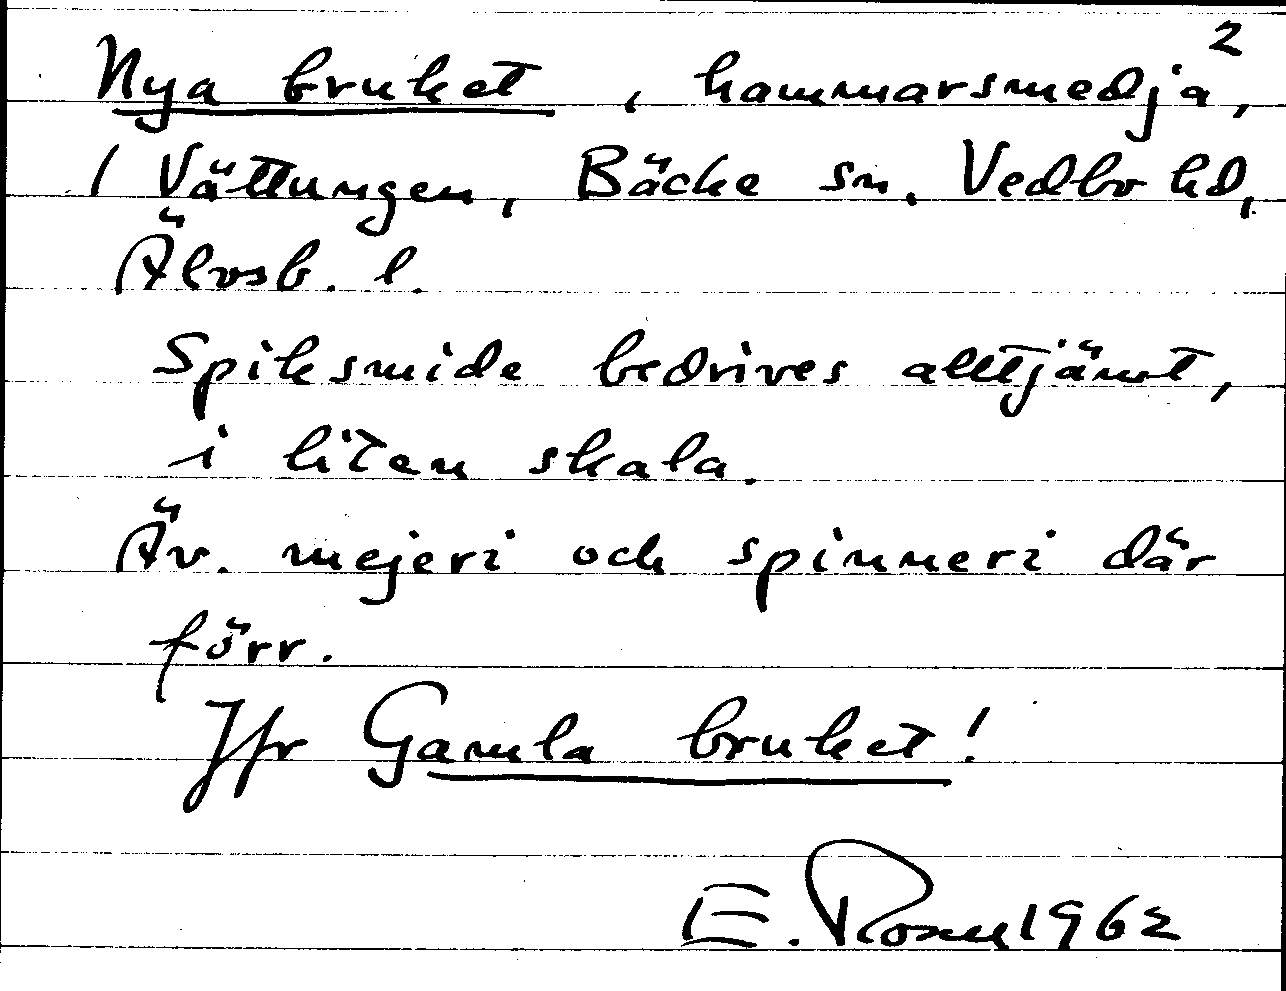 2
Nya bruket, hammarsmedja,
/ Vättungen, Bäcke sn. Vedbo hd,
Älvsb. l.
Spiksmide bedrives alltjämt,
i liten skala.
Äv. mejeri och spinneri där
förr.
Jfr Gamla bruket!
E. 1962